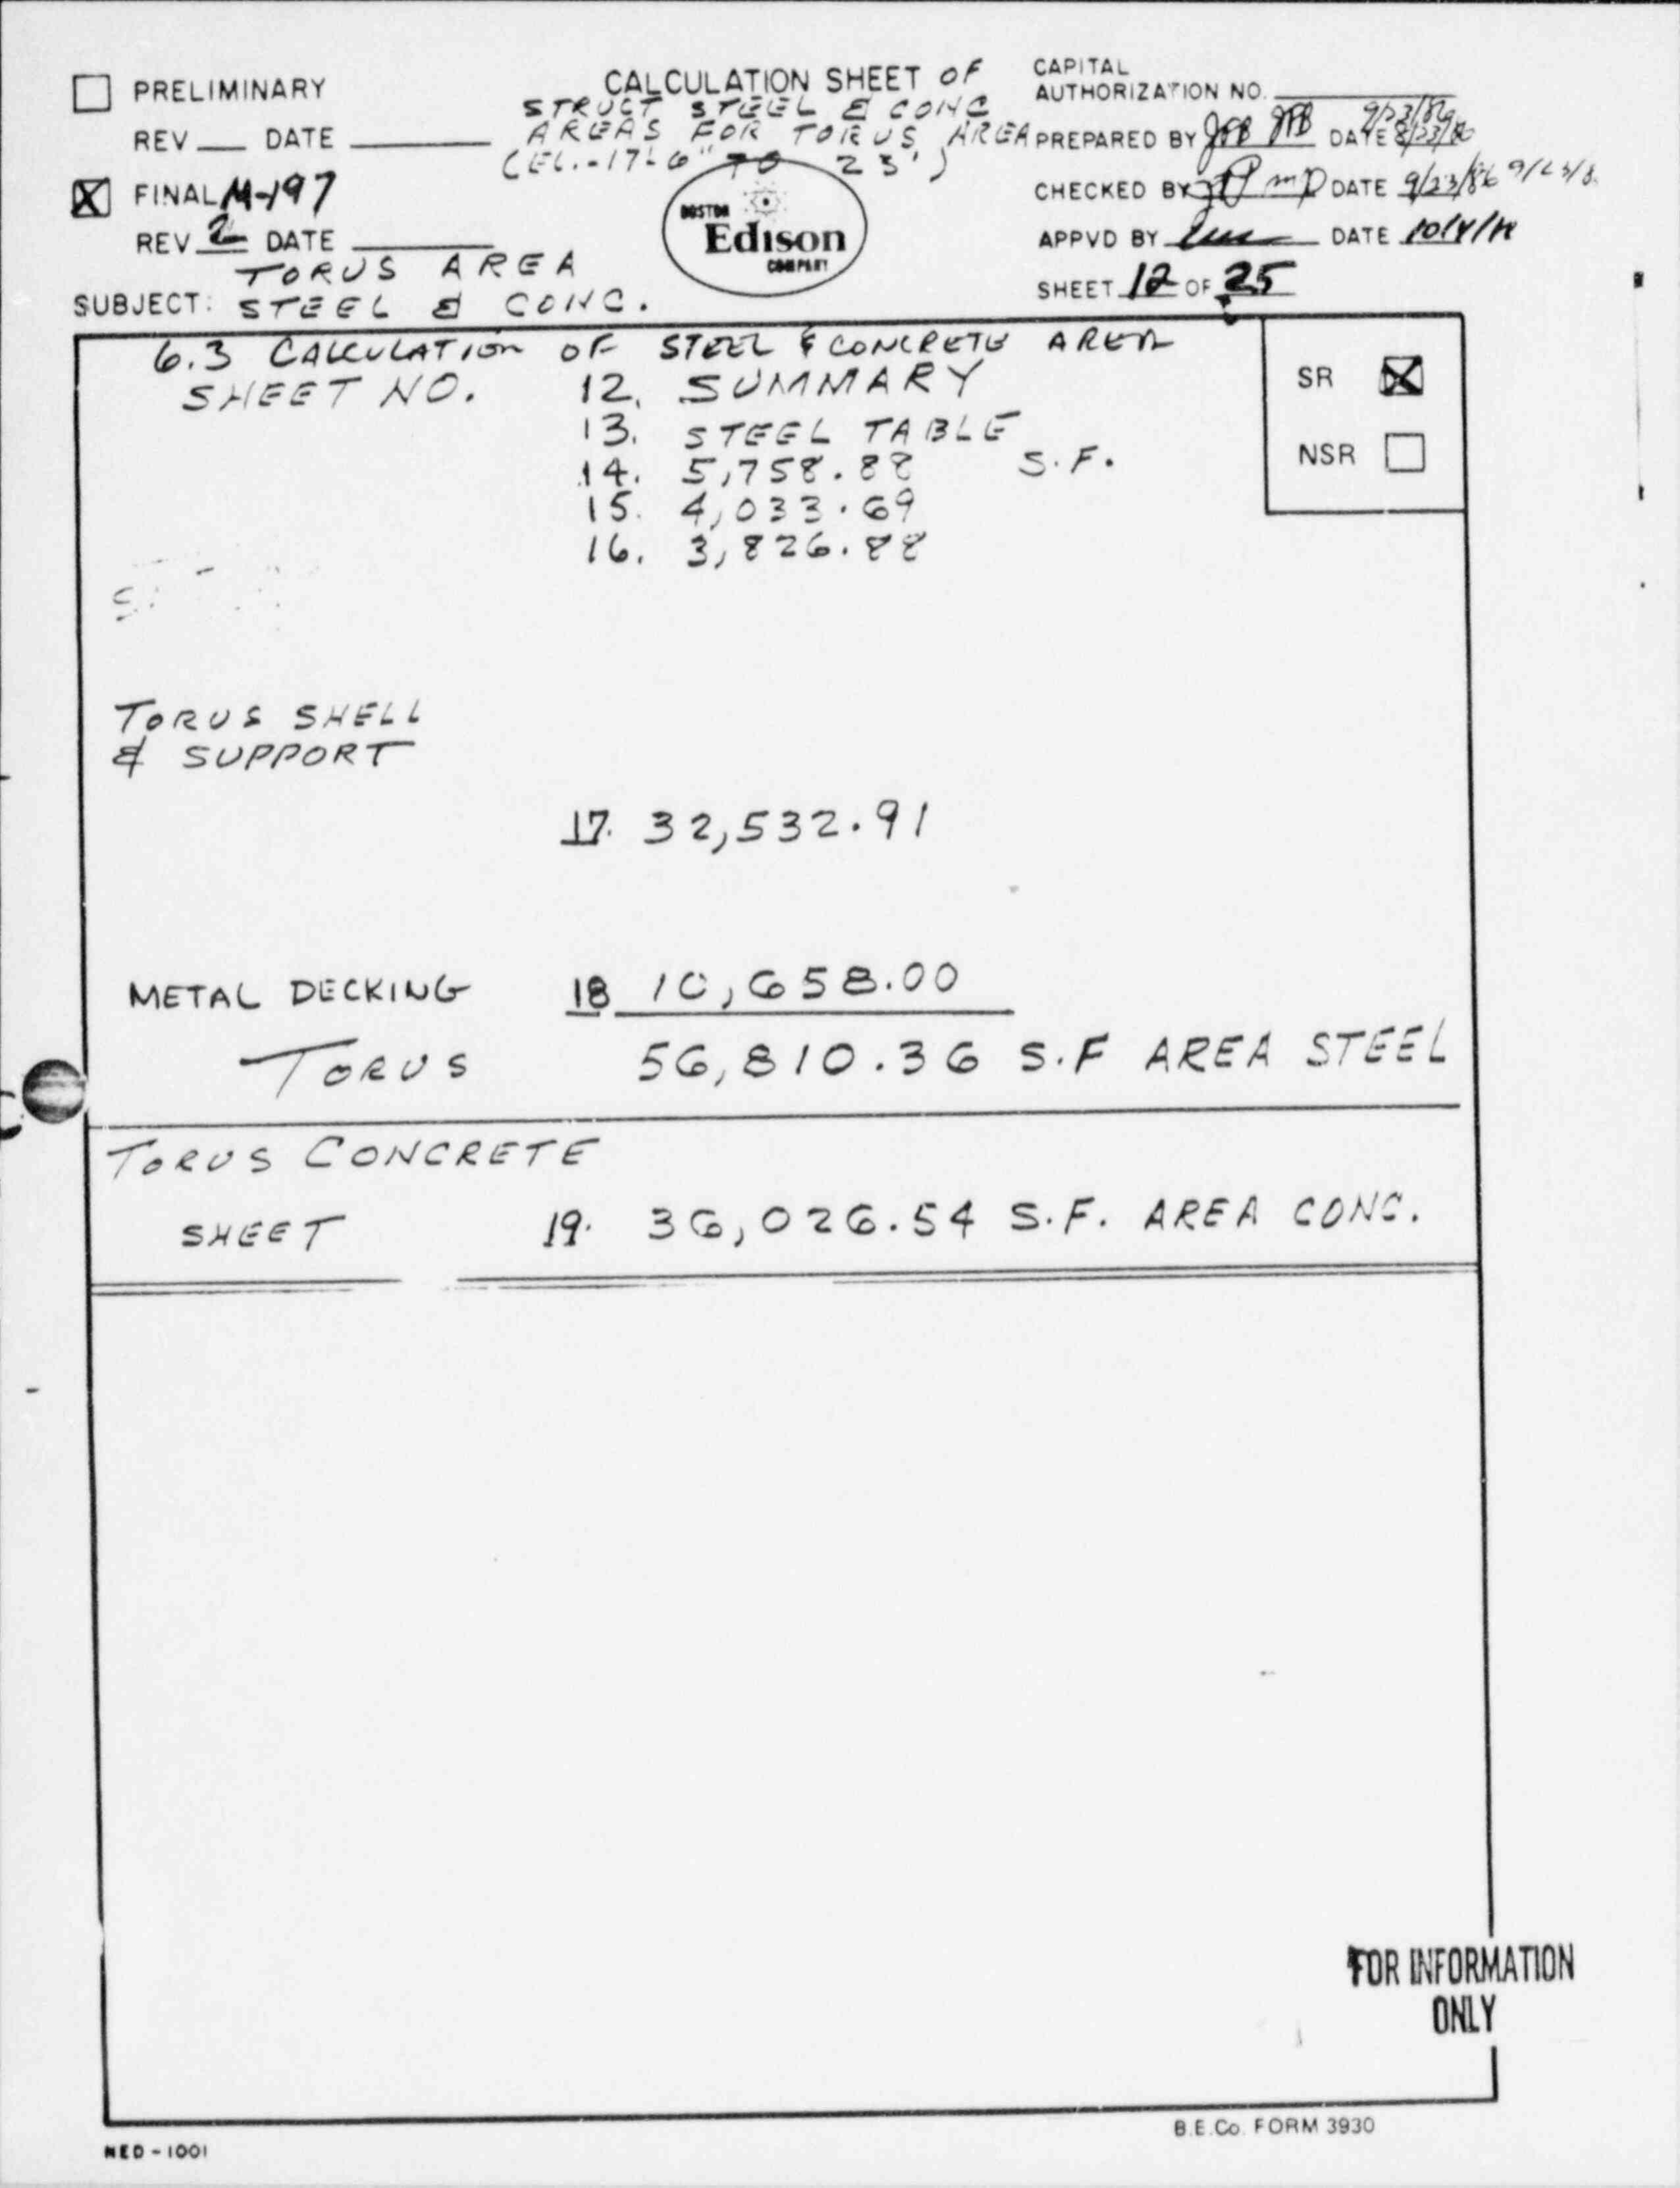 PRELIMINARY
REV DATE
FINAL M-197
REV 2 DATE
CALCULATION SHEET OF
STRUCT STEEL & CONC
AREAS FOR TORUS AREA
(EL.-17-6" TO 23')
BOSTON
Edison
COMPANY
CAPITAL
AUTHORIZATION NO.
PREPARED BY JFB JFB DATE 9/23/86
CHECKED BY DATE 9/23/86
APPVD BY DATE
SHEET 12 OF 25
SUBJECT: TORUS AREA
STEEL & CONC.
6.3 CALCULATION OF STEEL & CONCRETE AREA
SHEET NO. 12. SUMMARY
13. STEEL TABLE
14. 5,758.88 S.F.
15. 4,033.69
16. 3,826.88
SR
NSR
TORUS SHELL
& SUPPORT
17. 32,532.91
METAL DECKING 18 10,658.00
TORUS 56,810.36 S.F AREA STEEL
TORUS CONCRETE
SHEET 19. 36,026.54 S.F. AREA CONC.
FOR INFORMATION
ONLY
B.E.Co. FORM 3930
NED-1001